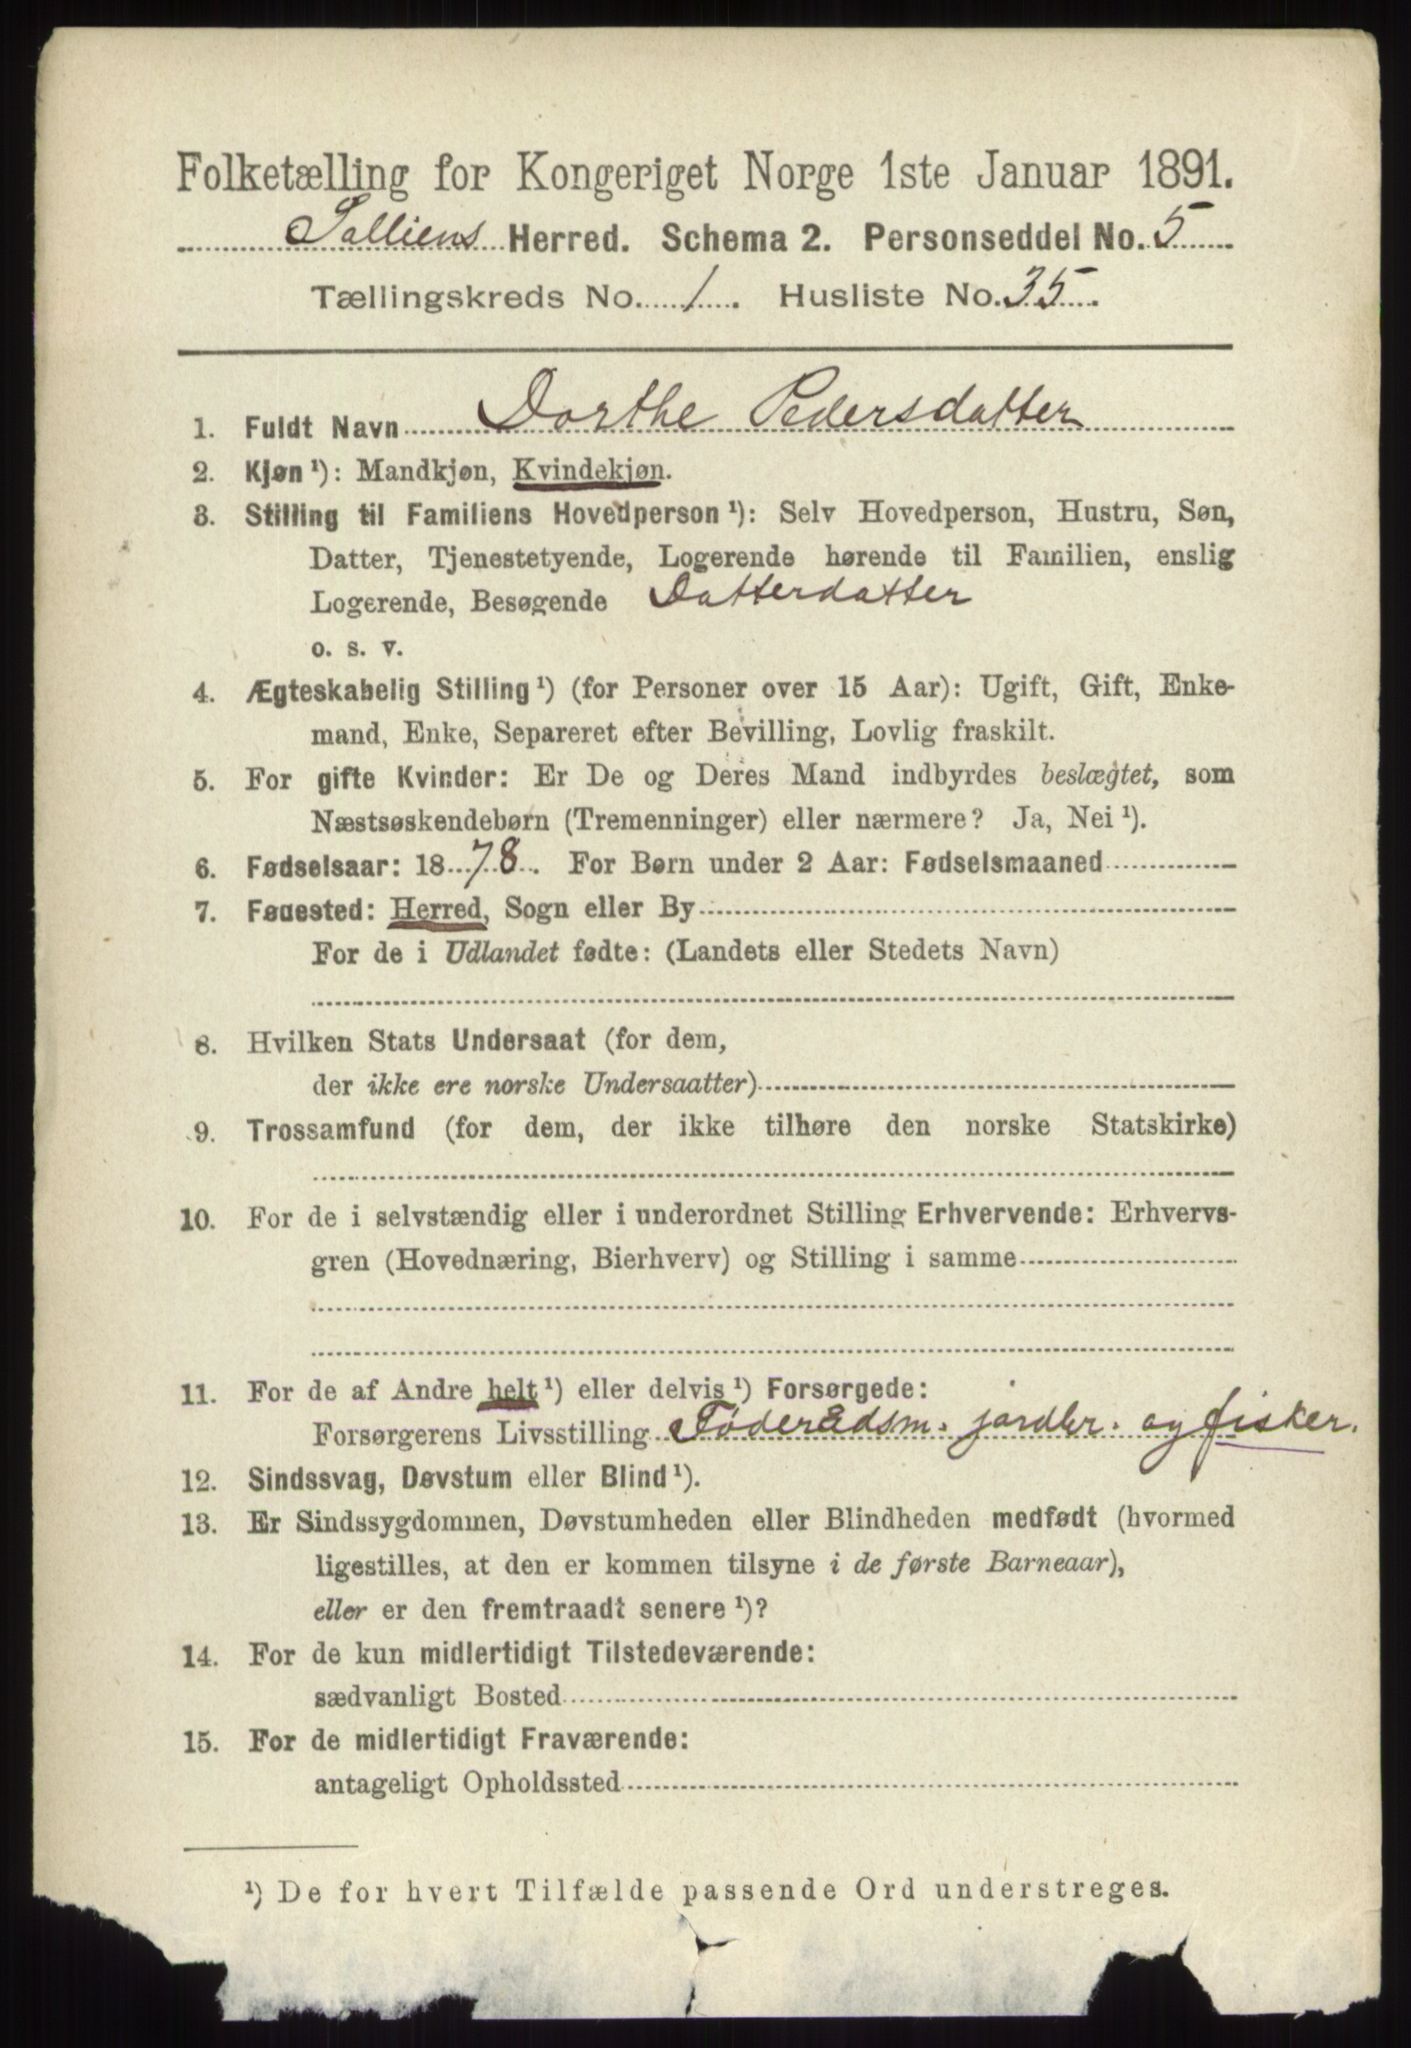 Folketælling for Kongeriget Norge 1ste Januar 1891.
Herred. Schema 2. Personseddel No. 5
Tællingskreds No. 1. Husliste No. 35.
1. Fuldt Navn Dorthe Pedersdatter
2. Kjøn ¹): Mandkjøn, Kvindekjøn.
3. Stilling til Familiens Hovedperson ¹): Selv Hovedperson, Hustru, Søn,
Datter, Tjenestetyende, Logerende hørende til Familien, enslig
Logerende, Besøgende Datterdatter
o. s. v.
4. Ægteskabelig Stilling ¹) (for Personer over 15 Aar): Ugift, Gift, Enke-
mand, Enke, Separeret efter Bevilling, Lovlig fraskilt.
5. For gifte Kvinder: Er De og Deres Mand indbyrdes beslægtet, som
Næstsøskendebørn (Tremenninger) eller nærmere? Ja, Nei ¹).
6. Fødselsaar: 1878. For Børn under 2 Aar: Fødselsmaaned
7. Fødested: Herred, Sogn eller By
For de i Udlandet fødte: (Landets eller Stedets Navn)
8. Hvilken Stats Undersaat (for dem,
der ikke ere norske Undersaatter)
9. Trossamfund (for dem, der ikke tilhøre den norske Statskirke)
10. For de i selvstændig eller i underordnet Stilling Erhvervende: Erhvervs-
gren (Hovednæring, Bierhverv) og Stilling i samme
11. For de af Andre helt ¹) eller delvis ¹) Forsørgede:
Forsørgerens Livsstilling Føderådsm. jordbr. og fisker.
12. Sindssvag, Døvstum eller Blind ¹).
13. Er Sindssygdommen, Døvstumheden eller Blindheden medfødt (hvormed
ligestilles, at den er kommen tilsyne i de første Barneaar),
eller er den fremtraadt senere ¹)?
14. For de kun midlertidigt Tilstedeværende:
sædvanligt Bosted
15. For de midlertidigt Fraværende:
antageligt Opholdssted
¹) De for hvert Tilfælde passende Ord understreges.